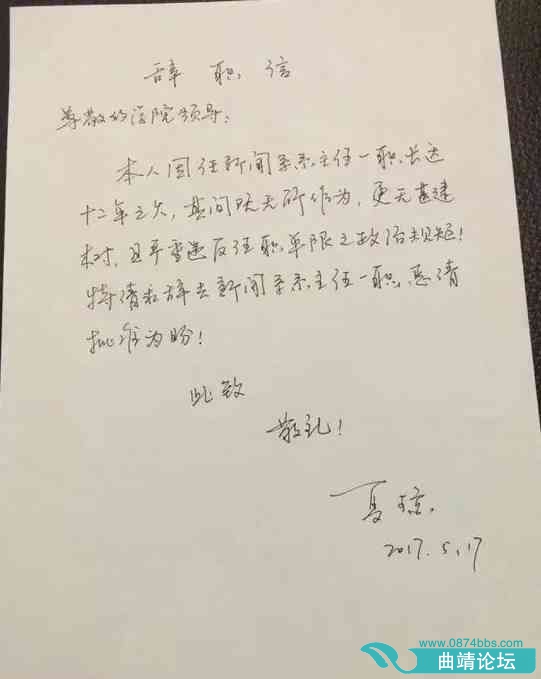 辞职信
尊敬的学院领导:
本人因任新闻系系主任一职长达
十二年之久,其间既无所作为,更无甚建
树,且严重违反任职年限之政治规矩!
特请求辞去新闻系系主任一职,恳请
批准为盼!
此致
敬礼!
夏琼
2017.5.17
www.0874bbs.com
曲靖论坛